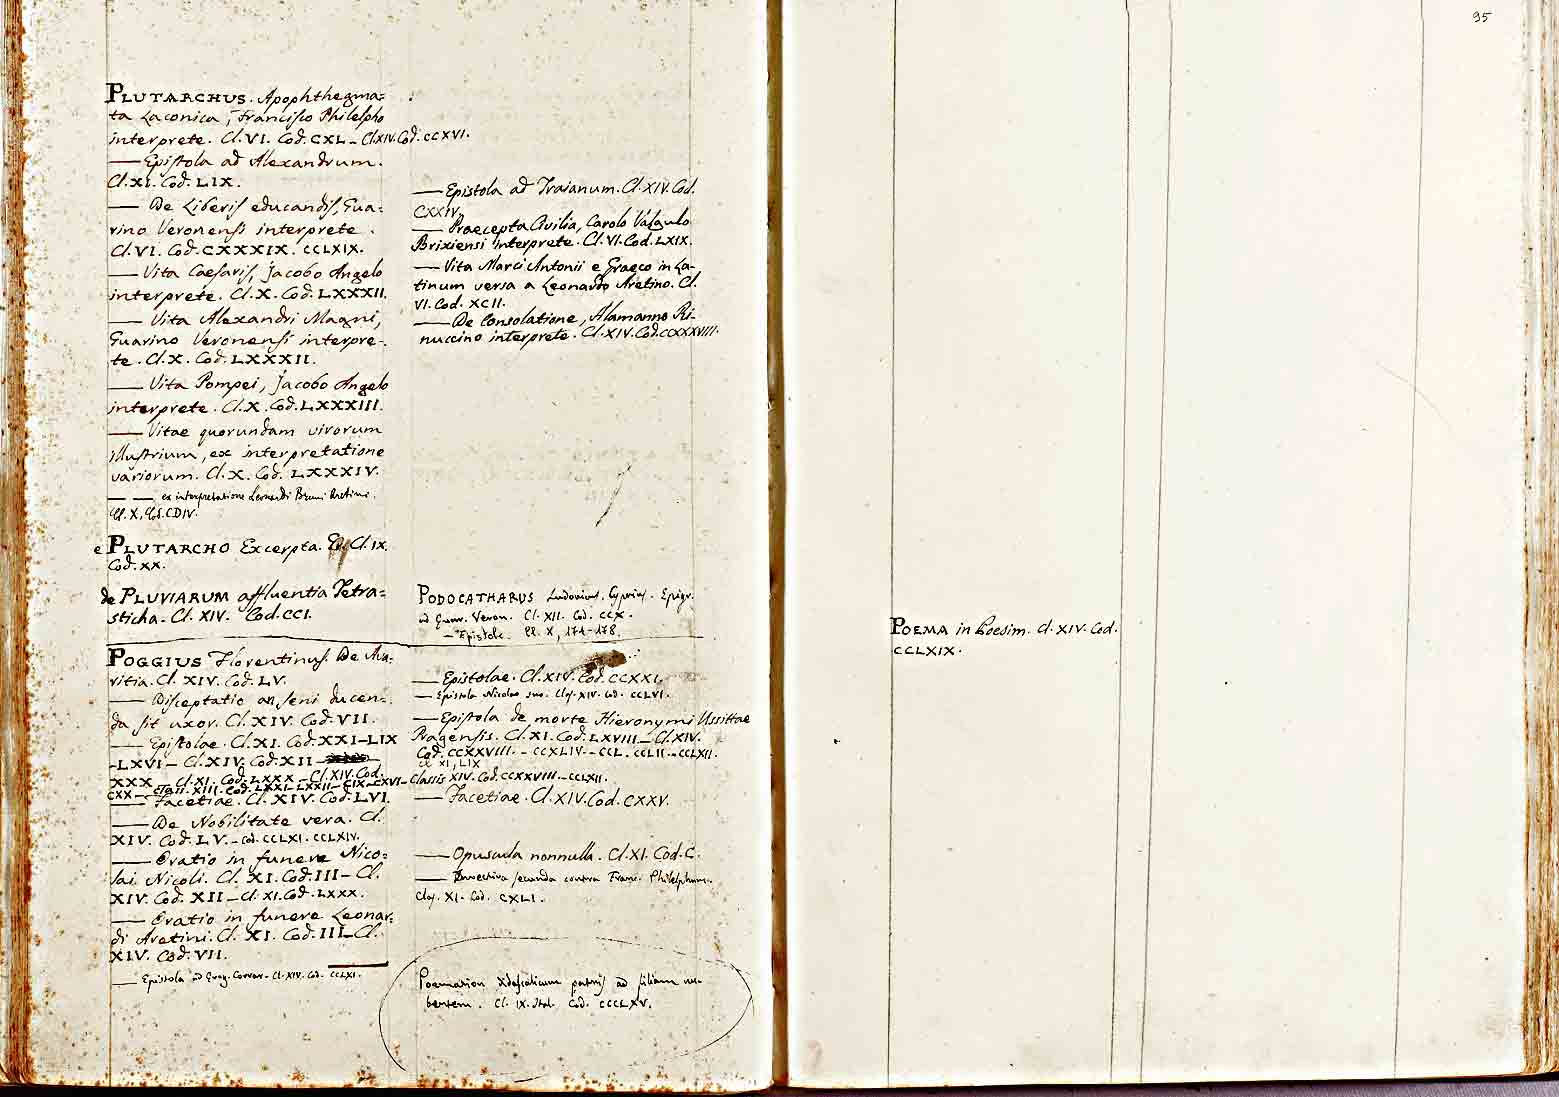 PLUTARCHUS. Apophthegma=
ta Laconica, Francisco Philelpho
interprete. Cl. VI. Cod. CXL – Cl. XIV. Cod. CCXVI.
— Epistola ad Alexandrum.
Cl. XI. Cod. LIX.
— De Liberis educandis, Gua=
rino Veronensi interprete.
Cl. VI. Cod. CXXXIX. CCLXIX.
— Vita Caesaris, Jacobo Angelo
interprete. Cl. X. Cod. LXXXII.
— Vita Alexandri Magni,
Guarino Veronensi interpre-
te. Cl. X. Cod. LXXXII.
— Vita Pompei, Jacobo Angelo
interprete. Cl. X. Cod. LXXXIII.
— Vitae quorundam virorum
illustrium, ex interpretatione
variorum. Cl. X. Cod. LXXXIV.
— — ex interpretatione Leonardi Bruni Aretini.
Cl. X, Cod. CDIV.
e PLUTARCHO Excerpta. Cl. IX.
Cod. XX.
de PLUVIARUM affluentia Tetra=
sticha. Cl. XIV. Cod. CCI.
POGGIUS Florentinus. De Ava=
ritia. Cl. XIV. Cod. LV.
— Disceptatio an seni ducen=
da sit uxor. Cl. XIV. Cod. VII.
— Epistolae. Cl. XI. Cod. XXI – LIX
– LXVI – Cl. XIV. Cod. XII –
XXX – Cl. XI. Cod. LXXX – Cl. XIV. Cod.
CXX – Class. XIII. Cod. LXXI – LXXII – CIX – CXVI – Classis XIV. Cod. CCXXVIII – CCLXII.
— Facetiae. Cl. XIV. Cod. LVI.
— De Nobilitate vera. Cl.
XIV. Cod. LV. – Cod. CCLXI. CCLXIV.
— Oratio in funere Nico=
lai Nicoli. Cl. XI. Cod. III – Cl.
XIV. Cod. XII – Cl. XI. Cod. LXXX.
— Oratio in funere Leonar=
di Aretini. Cl. XI. Cod. III – Cl.
XIV. Cod. VII.
— Epistola ad Greg. Corrar. Cl. XIV. Cod. CCLXI.
— Epistola ad Traianum. Cl. XIV. Cod.
CXXIV.
— Praecepta Civilia, Carolo Valgulo
Brixiensi interprete. Cl. VI. Cod. LXIX.
— Vita Marci Antonii e Graeco in La-
tinum versa a Leonardo Aretino. Cl.
VI. Cod. XCII.
— De Consolatione, Alamanno Ri-
nuccino interprete. Cl. XIV. Cod. CCXXXVIII.
PODOCATHARUS Ludovicus. Cyprius. Epigr.
ad Guar. Veron. Cl. XII. Cod. CCX.
– Epistole. Cl. X, 174-178.
— Epistolae. Cl. XIV. Cod. CCXXI.
— Epistola Nicolao suo. Clas. XIV. Cod. CCLVI.
— Epistola de morte Hieronymi Ussittae
Pragensis. Cl. XI. Cod. LXVIII – Cl. XIV.
Cod. CCXXVIII. – CCXLIV – CCL. CCLII – CCLXII.
Cl. XI, LIX
— Facetiae. Cl. XIV. Cod. CXXV.
— Opuscula nonnulla. Cl. XI. Cod. C.
— Invectiva secunda contra Franc. Philelphum.
Clas. XI. Cod. CXLI.
Poemation didascalicum patris ad filiam nu-
bentem. Cl. IX. Ital. Cod. CCCLXV.
95
POEMA in Poesim. Cl. XIV. Cod.
CCLXIX.